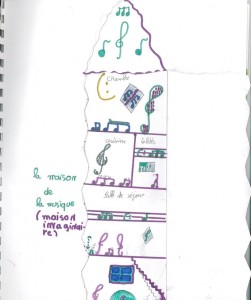 chambre
cuisine
toilette
salle de séjour
la maison
de
la musique
(maison
imaginai-
re)